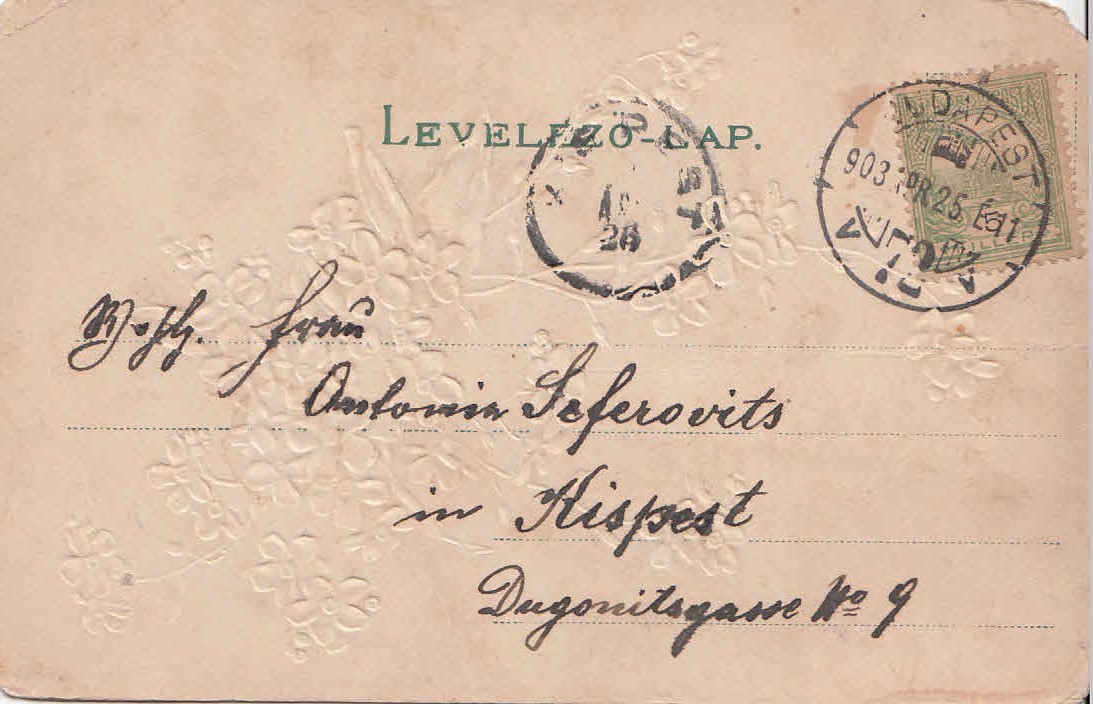 LEVELEZŐ-LAP.
BUDAPEST
903 APR 25 E 11
AP
26
Wohlg. Frau
Antonia Seferovits
in Kispest
Dugonitsgasse No 9